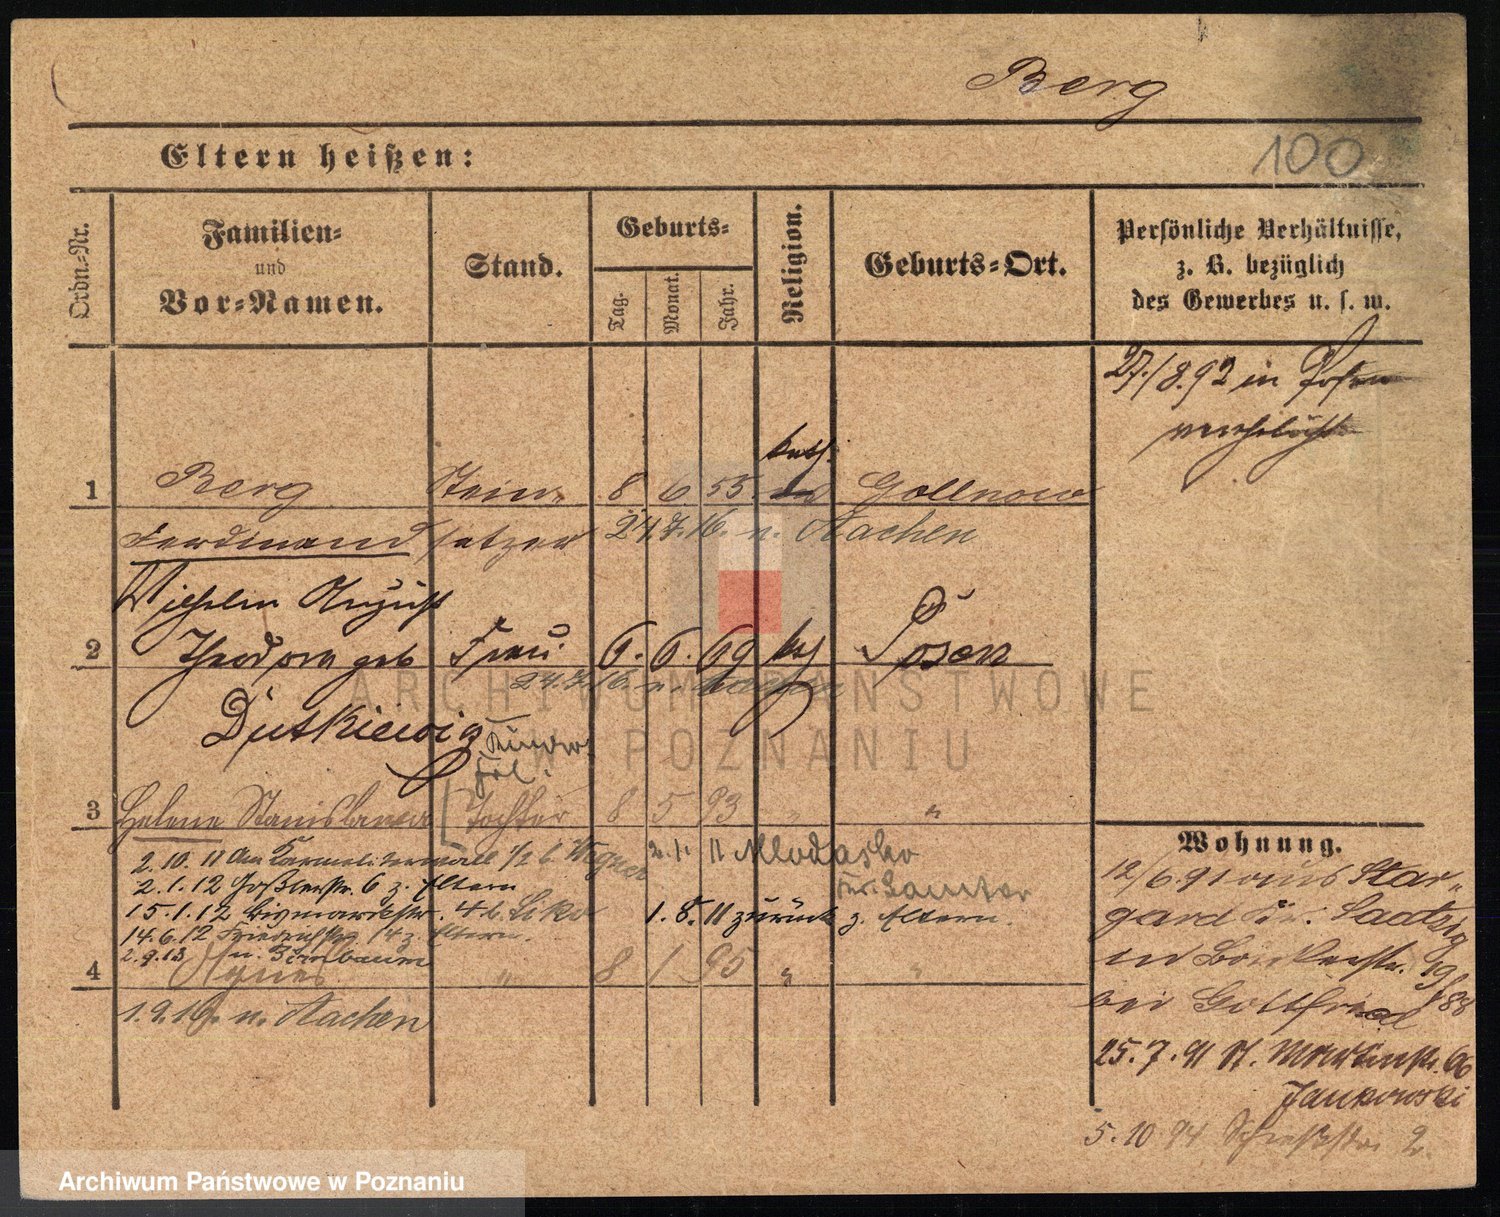 Berg
100
Eltern heißen:
Ordn.-Nr.
Familien-
und
Vor-Namen.
Stand.
Geburts-
Tag.
Monat.
Jahr.
Religion.
Geburts-Ort.
Persönliche Verhältnisse,
z. B. bezüglich
des Gewerbes u. s. w.
27./8.92 in Posen
verehelicht
kath.
1 Berg Stein- 8 6 55. Gollnow
Ferdinand setzer 24.7.16. n. Aachen
Wilhelm August
2 Theodora geb Frau 6. 6. 69 kath Posen
24.7.16. n. Aachen
Dutkiewig
Kinder
Frl.
3 Helene Stanislawa Tochter 8 5 93 " "
2.10.11 Am Karmeliterwall 1/2 b. Wegner 2.1.11 Mlodasko
Kr. Samter
2.1.12 Goßlerstr. 6 z. Eltern
15.1.12 Bismarckstr. 4 b. 1.8.11 zurück z. Eltern.
14.6.12 Friedrichstr. 14 z. Eltern.
2.9.13 n. Birnbaum
4 Agnes " 8 1 95 " "
1.9.16. n. Aachen
Wohnung.
12/6.91 aus Star-
gard Kr. Saatzig
in 19/
bei Gottfried 88
25.7.91 St. Martinstr. 66
Jankowski
5.10 94 Schießstr. 2.
ARCHIWUM PAŃSTWOWE
W POZNANIU
Archiwum Państwowe w Poznaniu